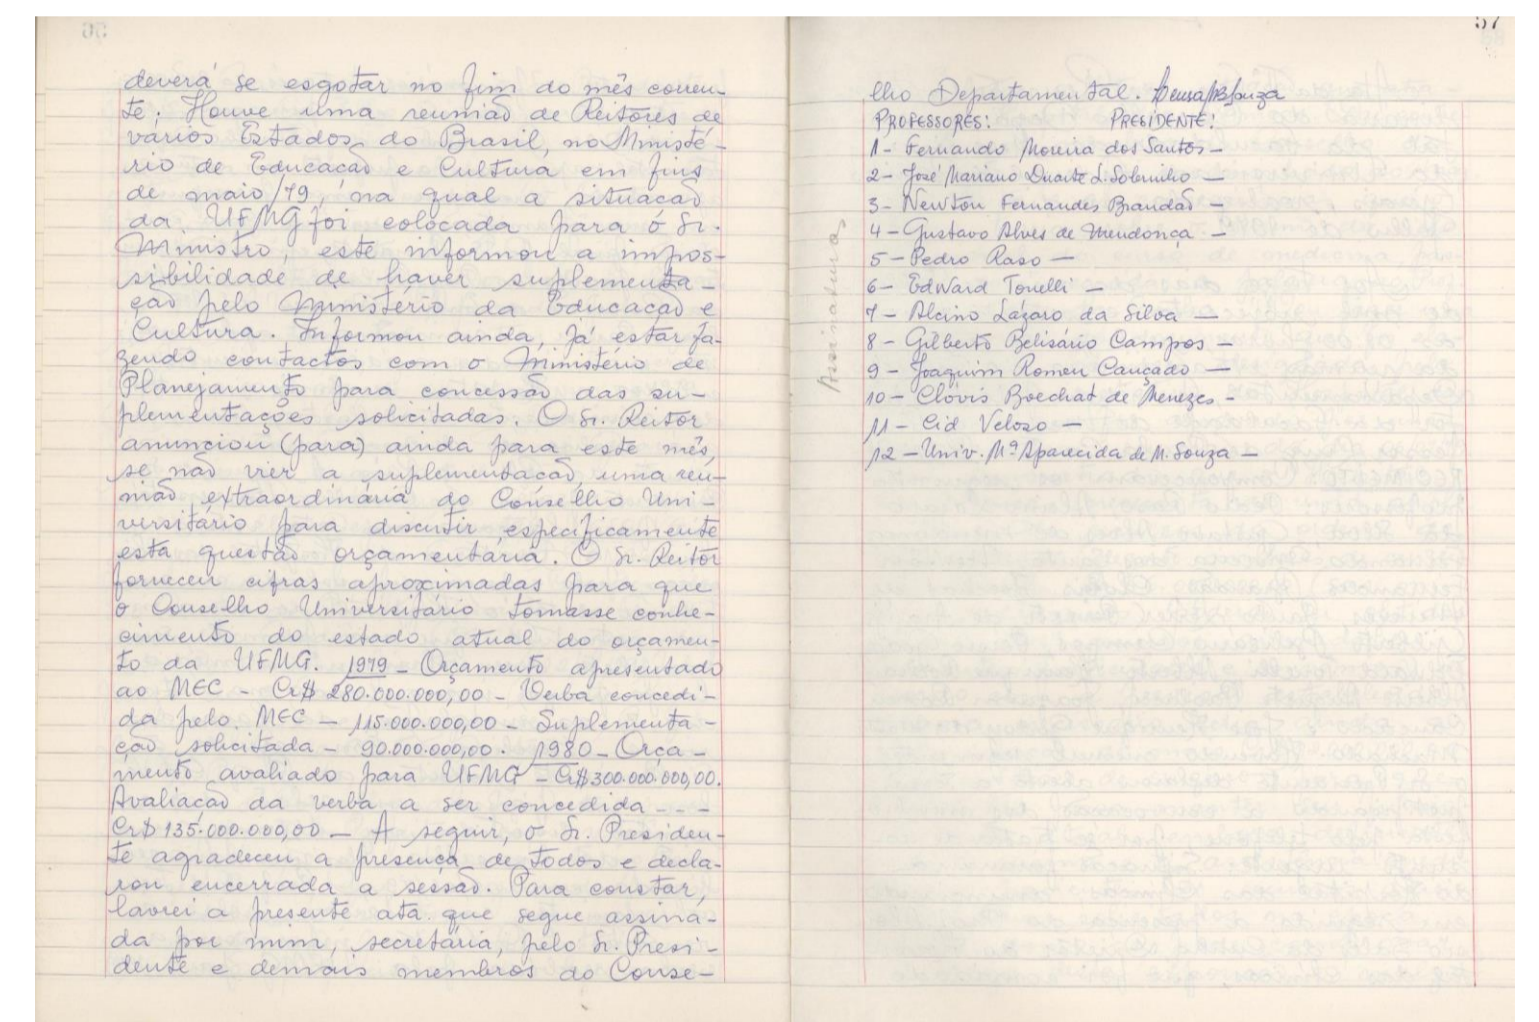 deverá se esgotar no fim do mês corren-
te. Houve uma reunião de Reitores de
vários Estados do Brasil, no Ministé-
rio de Educação e Cultura em fins
de maio/79, na qual a situação
da UFMG foi colocada para o Sr.
Ministro, este informou a impos-
sibilidade de haver suplementa-
ção pelo Ministério da Educação e
Cultura. Informou ainda, já estar fa-
zendo contactos com o Ministério de
Planejamento para concessão das su-
plementações solicitadas. O Sr. Reitor
anunciou (para) ainda para este mês,
se não vier a suplementação, uma reu-
nião extraordinária do Conselho Uni-
versitário para discutir especificamente
esta questão orçamentária. O Sr. Reitor
forneceu cifras aproximadas para que
o Conselho Universitário tomasse conhe-
cimento do estado atual do orçamen-
to da UFMG. 1979 - Orçamento apresentado
ao MEC - Cr$ 280.000.000,00 - Verba concedi-
da pelo MEC - 115.000.000,00 - Suplementa-
ção solicitada - 90.000.000,00. 1980 - Orça-
mento avaliado para UFMG - Cr$ 300.000.000,00.
Avaliação da verba a ser concedida - - -
Cr$ 135.000.000,00 - A seguir, o Sr. Presiden-
te agradeceu a presença de todos e decla-
rou encerrada a sessão. Para constar,
lavrei a presente ata que segue assina-
da por mim, secretária, pelo Sr. Presi-
dente e demais membros do Conse-
57
lho Departamental.
PROFESSORES: PRESIDENTE:
1- Fernando Moreira dos Santos -
2- José Mariano Duarte L. Sobrinho -
3- Newton Fernandes Brandão -
4- Gustavo Alves de Mendonça -
5- Pedro Raso -
6- Edward Tonelli -
7- Alcino Lázaro da Silva -
8- Gilberto Belisário Campos -
9- Joaquim Romeu Cançado -
10- Clóvis Boechat de Menezes -
11- Cid Veloso -
12- Univ. Mª Aparecida de M. Souza -
Assinaturas